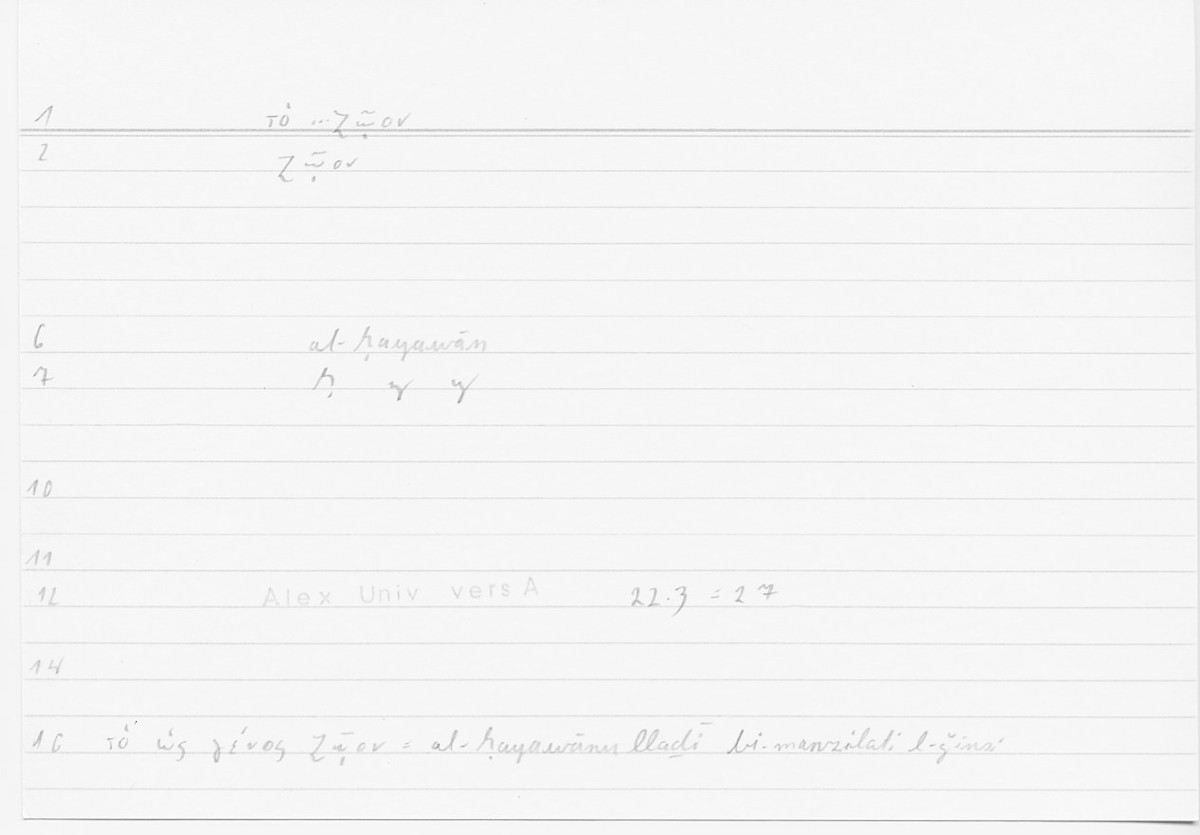 1 τὸ ... ζῷον
2 ζῷον
6 al-ḥayawān
7 ḥ y y
10
11
12 Alex Univ vers A 22.3 = 27
14
16 τὸ ὡς γένος ζῷον = al-ḥayawānu llaḏī bi-manzilati l-ǧinsi